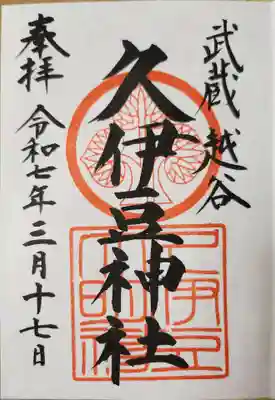 武蔵越谷
久伊豆神社
奉拝
令和七年三月十七日